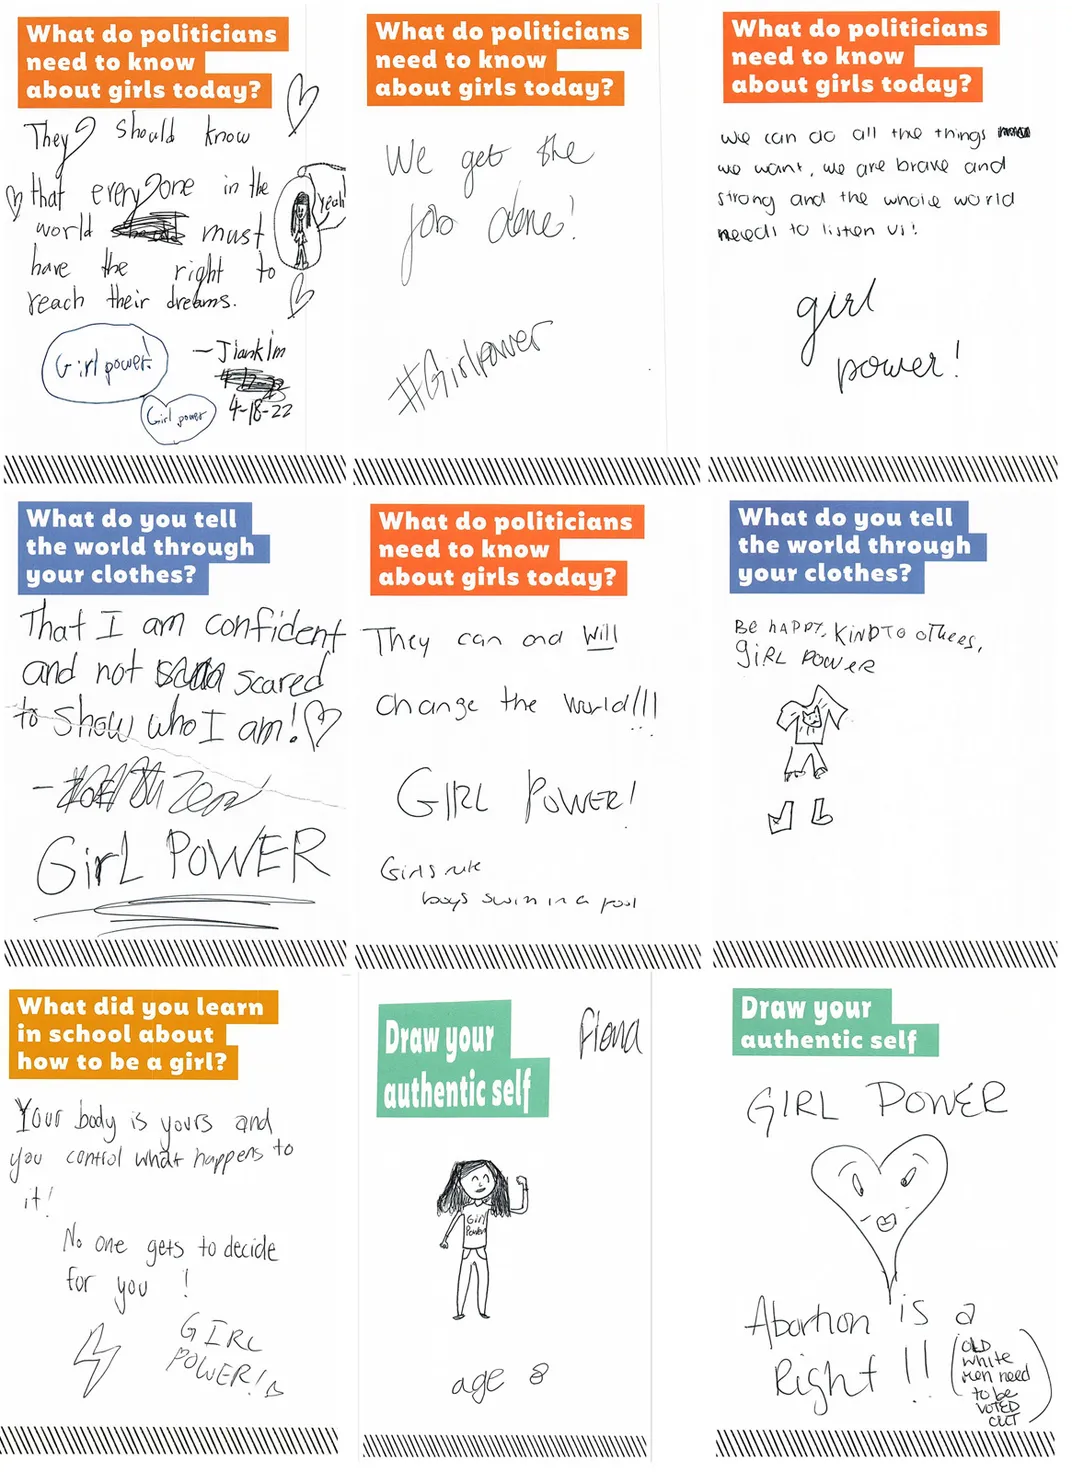 What do politicians
need to know
about girls today?
They should know
that everyone in the
world must
have the right to
reach their dreams.
Yeah!
Girl power!
Girl power
4-18-22
What do politicians
need to know
about girls today?
We get the
job done!
#Girlpower
What do politicians
need to know
about girls today?
we can do all the things
we want, we are brave and
strong and the whole world
needs to listen us!
girl
power!
What do you tell
the world through
your clothes?
That I am confident
and not scared
to show who I am!
GirL POWER
What do politicians
need to know
about girls today?
They can and will
change the world!!!
GIRL POWER!
Girls rule
boys swim in a pool
What do you tell
the world through
your clothes?
BE HAPPY, KIND TO OTHERS,
GIRL POWER
What did you learn
in school about
how to be a girl?
Your body is yours and
you control what happens to
it!
No one gets to decide
for you !
GIRL
POWER!
Draw your
authentic self
fiona
Girl
Power
age 8
Draw your
authentic self
GIRL POWER
Abortion is a
Right !!
(OLD
white
men need
to be
VOTED
OUT)